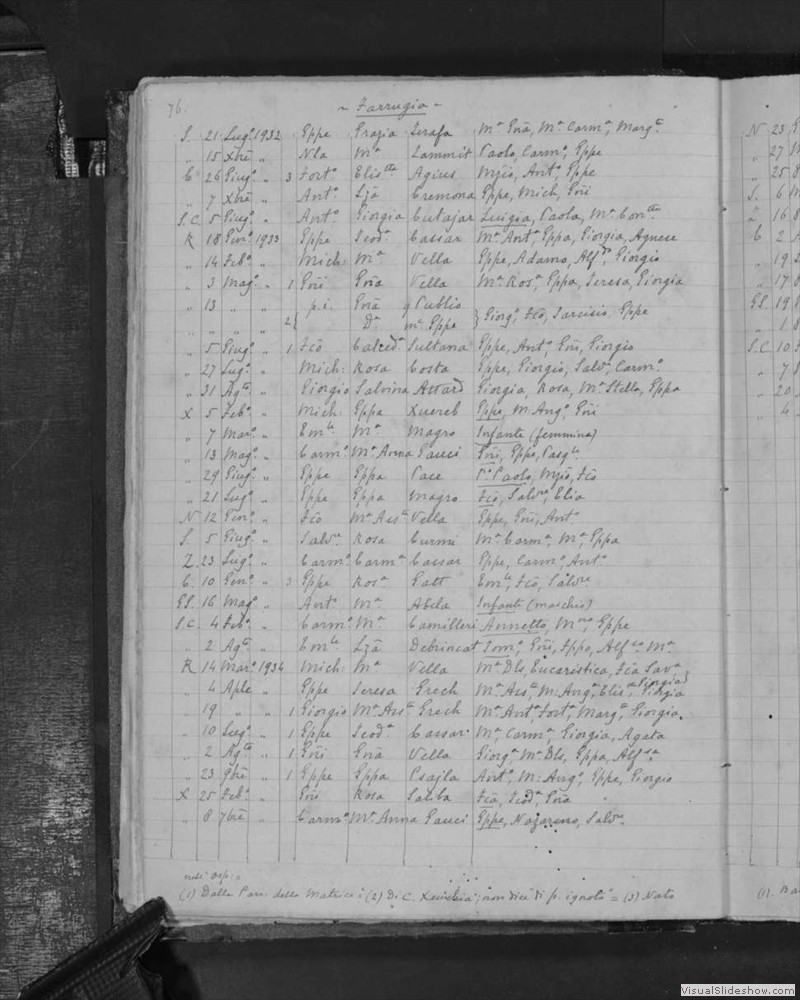 76.
~ Farrugia ~
S. 21 Lug.º 1932 Eppe Grazia Zerafa Mª Grã, Mª Carmª, Margª
" 15 Xbrē " Nla Mª Zammit Paolo, Carmº, Eppe
C 26 Giugº " 3 Fortº Elistta Agius Antº, Eppe
" 7 Xbrē " Antº Ljā Cremona Eppe, Mich, Gñi
S.C. 5 Giugº " Antº Giorgia Cutajar Luigia, Paola, Mª Conttta
R 18 Genº 1933 Eppe Teodª Cassar Mª Antª Eppa, Giorgia, Agnese
" 14 Febº " Mich: Mª Vella Eppe, Adamo, Alfdº, Giorgio
" 3 Magº " 1 Gñi Grã Vella Mª Rosª, Eppa, Teresa, Giorgia
" 13 " " p.i. Grã Publio
" " " 2{ Dª Eppe } Giorgº, Fcō, Tarcisio, Eppe
" 5 Giugº " 1 Fcō Calcedª Sultana Eppe, Antº, Gñi, Giorgio
" 27 Lugº " Mich: Rosa Costa Eppe, Giorgio, Salvº, Carmº
" 31 Agto " Giorgio Salvina Attard Giorgia, Rosa, Mª Stella, Eppa
X 5 Febº " Mich: Eppa Xuereb Eppe, M: Angº, Gñi
" 7 Marº " Emle Mª Magro Infante (femmina)
" 13 Magº " Carmº Mª Anna Gauci Gñi, Eppe, Pasqle
" 29 Giugº " Eppe Eppa Pace Paolo, Fcō
" 21 Lugº " Eppe Eppa Magro Fcō, Salvre, Elia
N 12 Genº " Fcō Mª Assta Vella Eppe, Gñi, Antº
S. 5 Giugº " Salvre Rosa Curmi Mª Carmª, Mª, Eppa
Z. 23 Lugº " Carmº Carmª Cassar Eppe, Carmº, Antº
C. 10 Genº " 3 Eppe Rosª Gatt Emle, Fcō, Salvre
GS. 16 Magº " Antº Mª Abela Infante (maschio)
S.C. 4 Febº " Carmº Mª Camilleri Annetto, Eppe
" 2 Agto " Emle Ljā Debrincat Tomº, Gñi, Eppe, Alfdo, Mª
R 14 Marº 1934 Mich: Mª Vella Mª Dls, Eucaristica, Fcā Savª
" 4 Aple " Eppe Teresa Grech Mª Assª, M: Angª, Elisª, Giorgia
19 " " 1 Giorgio Mª Assª Grech Mª Antª Fortª, Margª, Giorgia.
" 10 Lugº " 1 Eppe Teodª Cassar. Mª, Carmª, Giorgia, Agata
" 2 Agto " 1 Gñi Grã Vella Giorgª Mª Dls, Eppa, Alfda
" 23 9brē " 1 Eppe Eppa Psajla Antº, M: Angº, Eppe, Giorgio
X 25 Febº " Gñi Rosa Saliba Fcā, Teodª, Grã
" 8 7brē " Carmº Mª Anna Gauci Eppe, Nazareno, Salvre
(1) Dalla Parr: della Matrice = (2) Di C. Xeuchia; non dice di p. ignoto = (3) Nato
N 23
" 27
" 25
S. 6
16
C 2
" 19
" 17
GS. 19
" 1
S.C. 10
" 7
" 20
" 4
(1).
VisualSlideshow.com